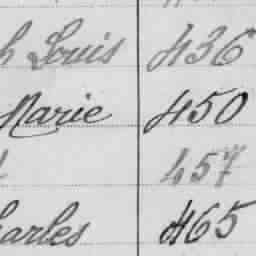 h Louis 436
Marie 450
457
harles 465